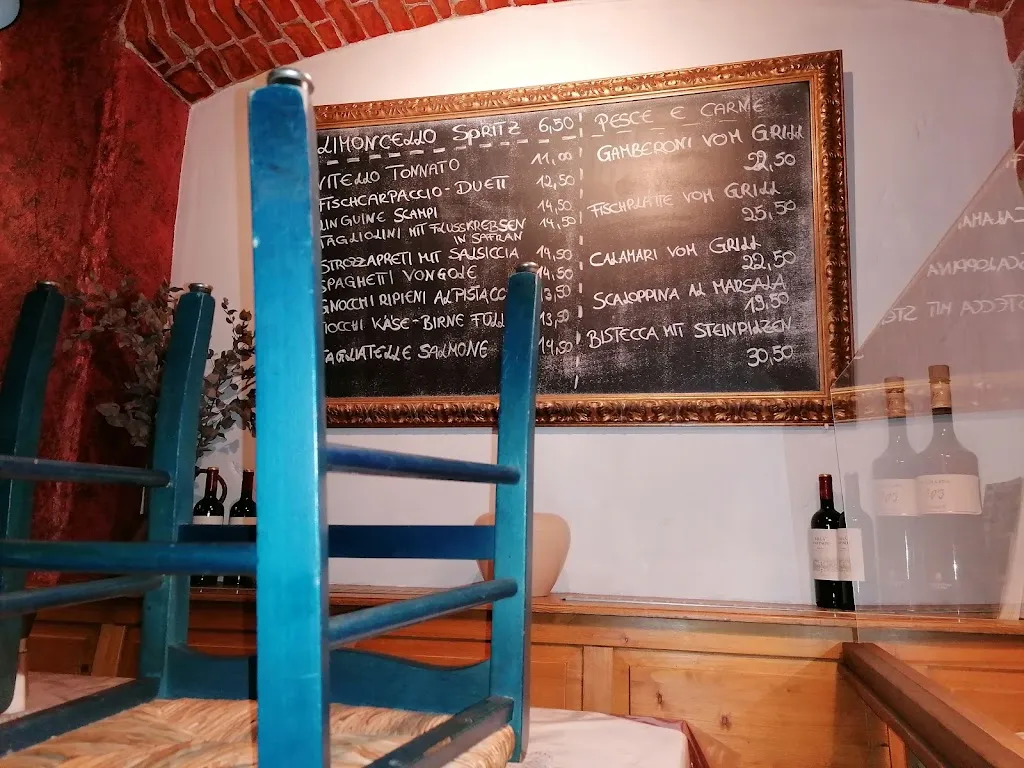 LIMONCELLO SPRITZ 6,50
VITELLO TONNATO 11,00
FISCHCARPACCIO-DUETT 12,50
LINGUINE SCAMPI 14,50
TAGLIOLINI MIT FLUSSKREBSEN 14,50
IN SAFRAN
STROZZAPRETI MIT SALSICCIA 14,50
SPAGHETTI VONGOLE 14,50
GNOCCHI RIPIENI AL PISTACC 13,50
IOCCHI KÄSE-BIRNE FÜLL 13,50
TAGLIATELLE SALMONE 14,50
PESCE E CARNE
GAMBERONI VOM GRILL
22,50
FISCHPLATTE VOM GRILL
25,50
CALAMARI VOM GRILL
22,50
SCALOPPINA AL MARSALA
19,50
BISTECCA MIT STEINPILZEN
30,50